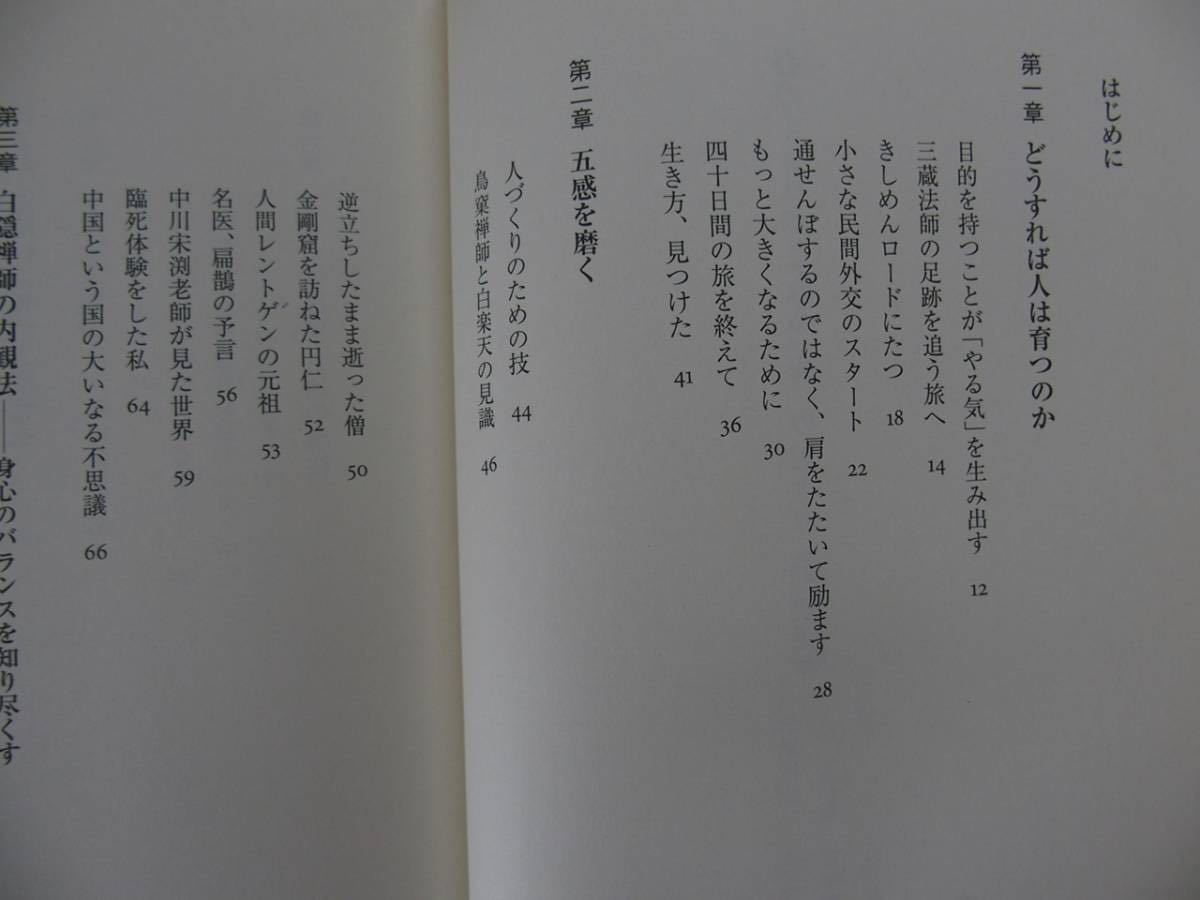 はじめに
第一章 どうすれば人は育つのか
目的を持つことが「やる気」を生み出す 12
三蔵法師の足跡を追う旅へ 14
きしめんロードにたつ 18
小さな民間外交のスタート 22
通せんぼするのではなく、肩をたたいて励ます 28
もっと大きくなるために 30
四十日間の旅を終えて 36
生き方、見つけた 41
第二章 五感を磨く
人づくりのための技 44
鳥窠禅師と白楽天の見識 46
逆立ちしたまま逝った僧 50
金剛窟を訪ねた円仁 52
人間レントゲンの元祖 53
名医、扁鵲の予言 56
中川宋渕老師が見た世界 59
臨死体験をした私 64
中国という国の大いなる不思議 66
第三章 白隠禅師の内観法――身心のバランスを知り尽くす